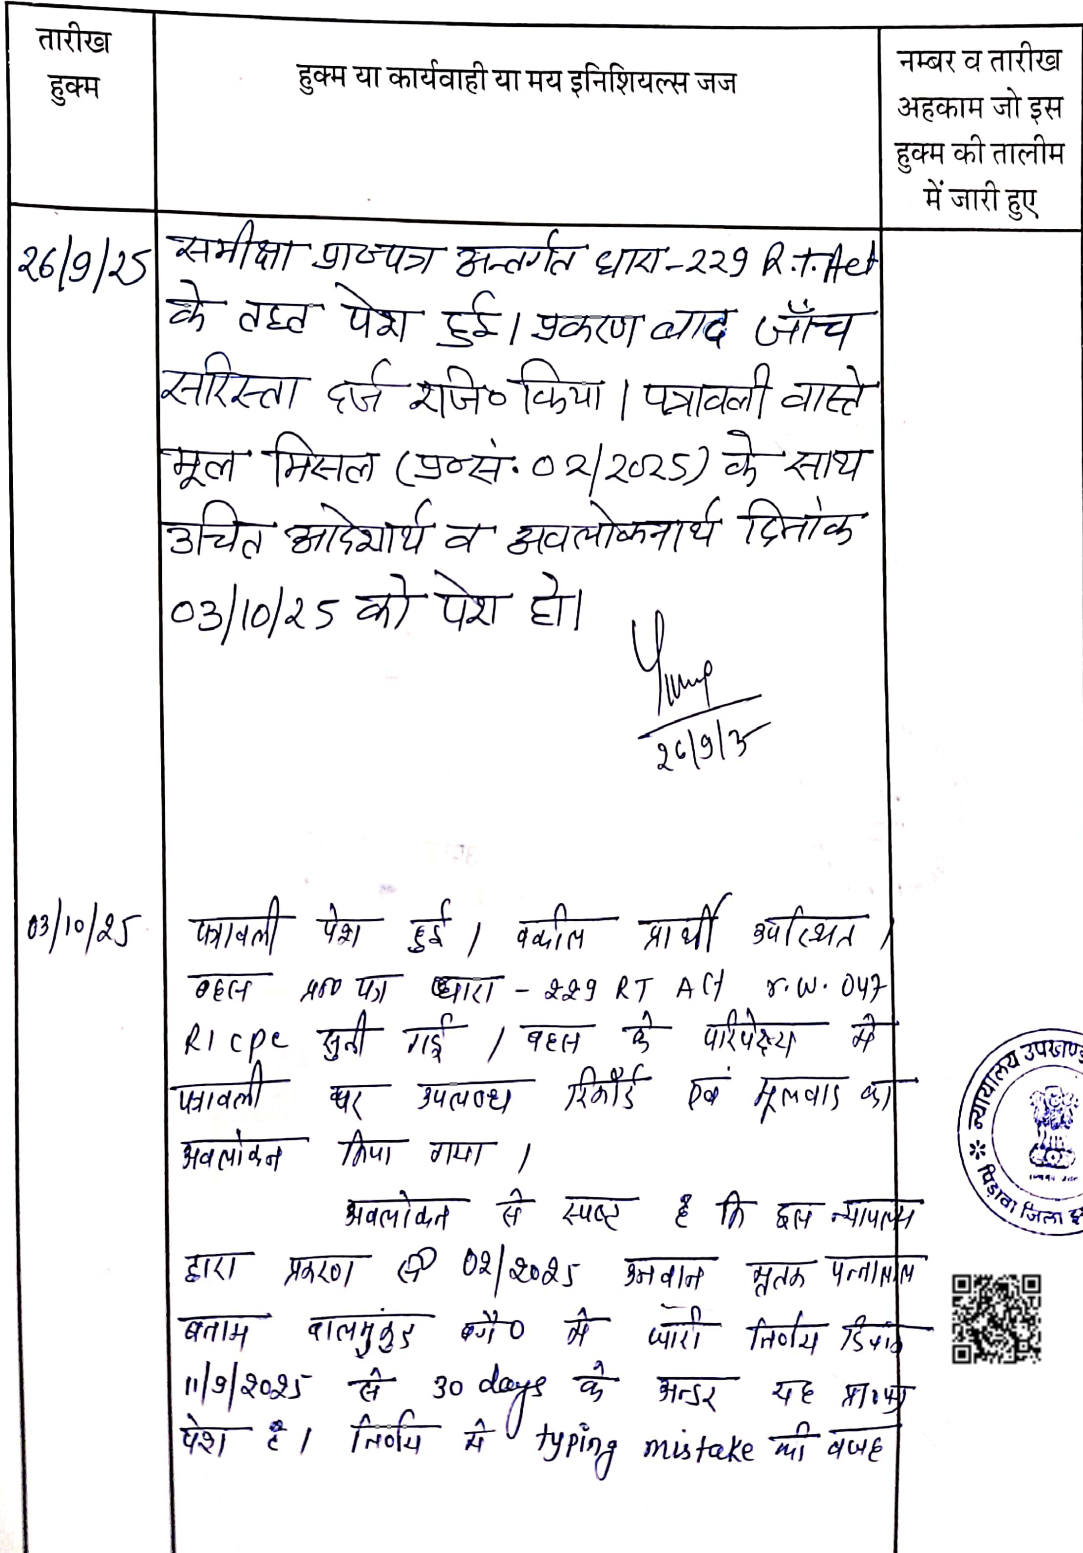 तारीख
हुक्म
हुक्म या कार्यवाही या मय इनिशियल्स जज
नम्बर व तारीख
अहकाम जो इस
हुक्म की तालीम
में जारी हुए
26/9/25
समीक्षा प्रा०पत्र अन्तर्गत धारा-229 R.T.Act
के तहत पेश हुई। प्रकरण बाद जाँच
सरिस्ता दर्ज रजि० किया। पत्रावली वास्ते
मूल मिसल (प्र०सं. 02/2025) के साथ
उचित आदेशार्थ व अवलोकनार्थ दिनांक
03/10/25 को पेश हो।
26/9/25
03/10/25
पत्रावली पेश हुई। वकील प्रार्थी उपस्थित।
बहस प्रा० पत्र धारा - 229 RT Act r.w. 047
R1 cpc सुनी गई। बहस के परिपेक्ष्य मे
पत्रावली पर उपलब्ध रिकॉर्ड एवं मूलवाद का
अवलोकन किया गया।
अवलोकन से स्पष्ट है कि इस न्यायालय
द्वारा प्रकरण सं 02/2025 उनवान मृतक पन्नालाल
बनाम बालमुकुंद वगै० मे जारी निर्णय दिनांक
11/9/2025 से 30 days के अन्दर यह प्रा०पत्र
पेश है। निर्णय मे typing mistake की वजह
न्यायालय उपखण्ड
पिड़ावा जिला झ